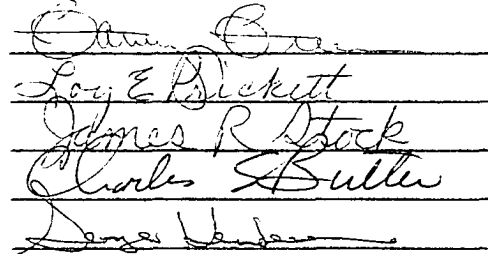 Loy E Prickett
James R Stock
Charles S Butler
George Henderson